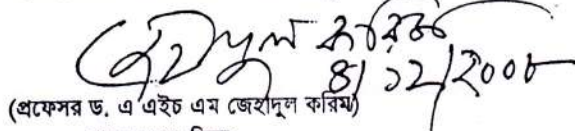 করিম
৪/১২/২০০৮
(প্রফেসর ড. এ এইচ এম জেহাদুল করিম)